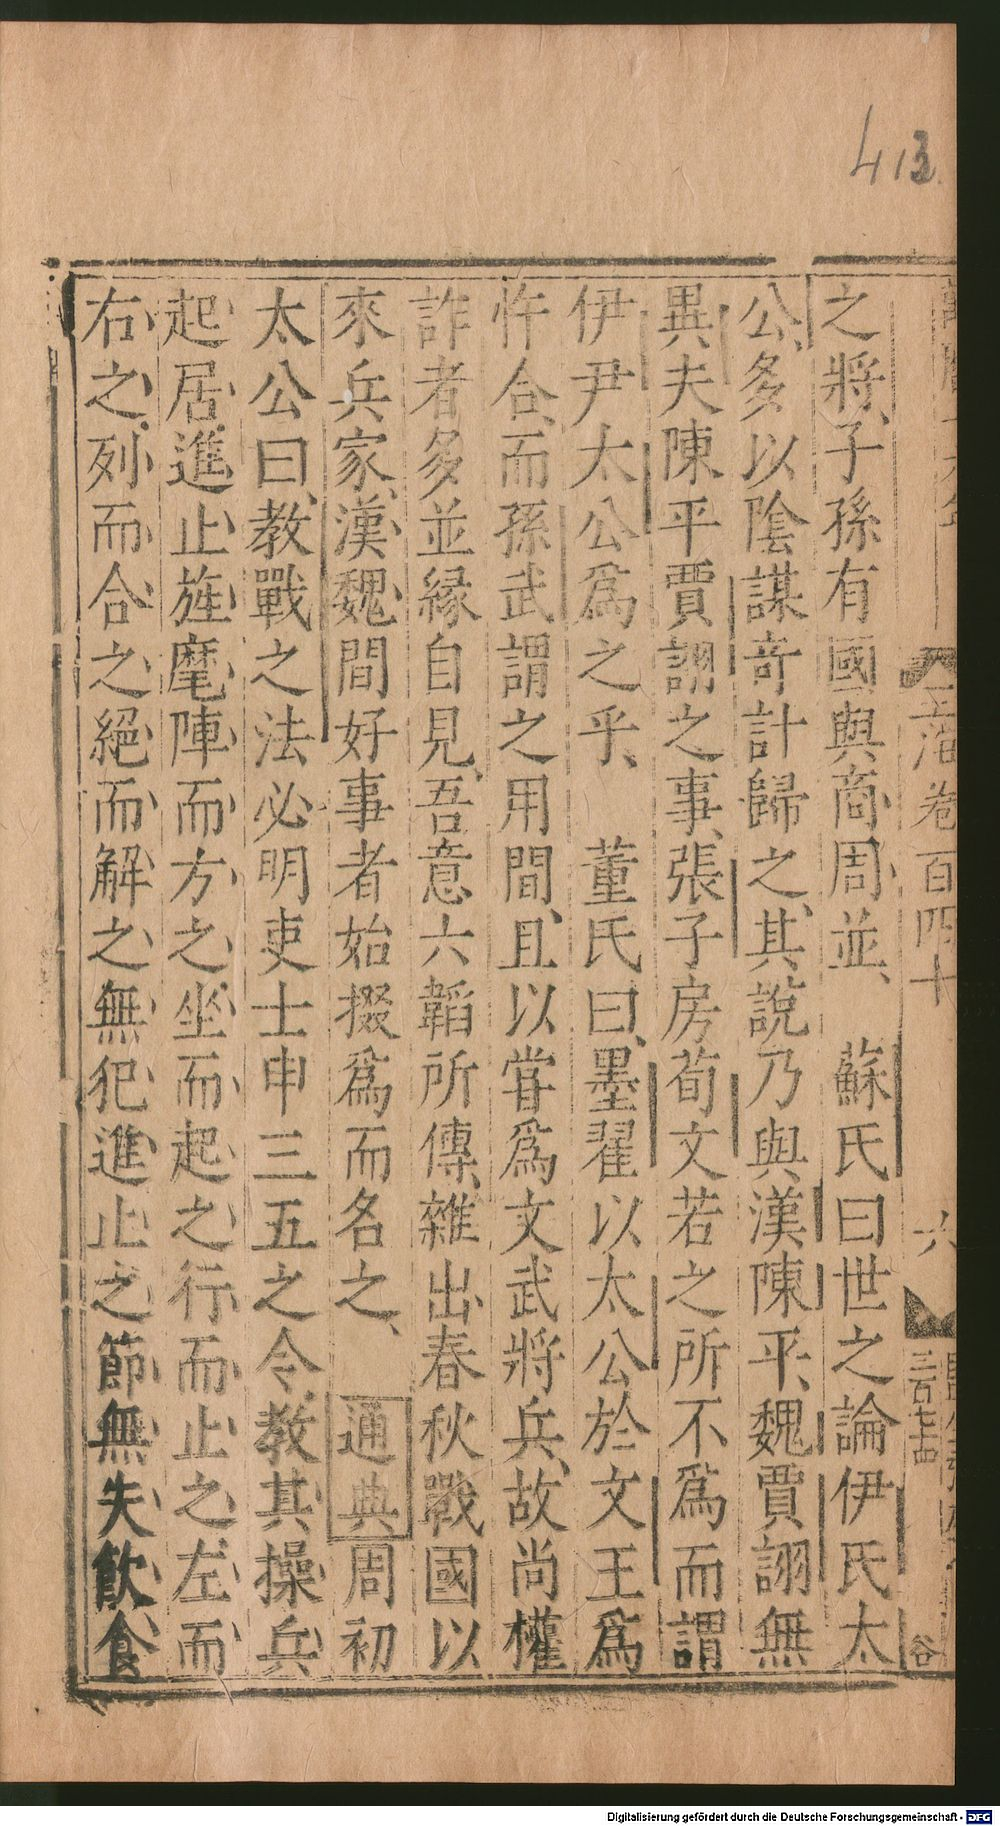 413
玉海卷百四十
六
三百七十四
谷
之將、子孫有國與商周並、　蘇氏曰世之論伊氏太
公、多以陰謀奇計歸之、其說乃與漢陳平、魏賈詡無
異、夫陳平賈詡之事、張子房荀文若之所不爲而謂
伊尹太公爲之乎、　董氏曰、墨翟以太公於文王爲
忤合、而孫武謂之用間、且以嘗爲文武將兵、故尚權
詐者多並緣自見、吾意六韜所傳、雜出春秋戰國以
來兵家、漢魏間好事者始掇爲而名之、通典周初
太公曰、教戰之法必明吏士申三五之令、教其操兵
起居、進止旌麾陣而方之、坐而起之行而止之左而
右之、列而合之絕而解之無犯進止之節無失飲食
Digitalisierung gefördert durch die Deutsche Forschungsgemeinschaft - DFG